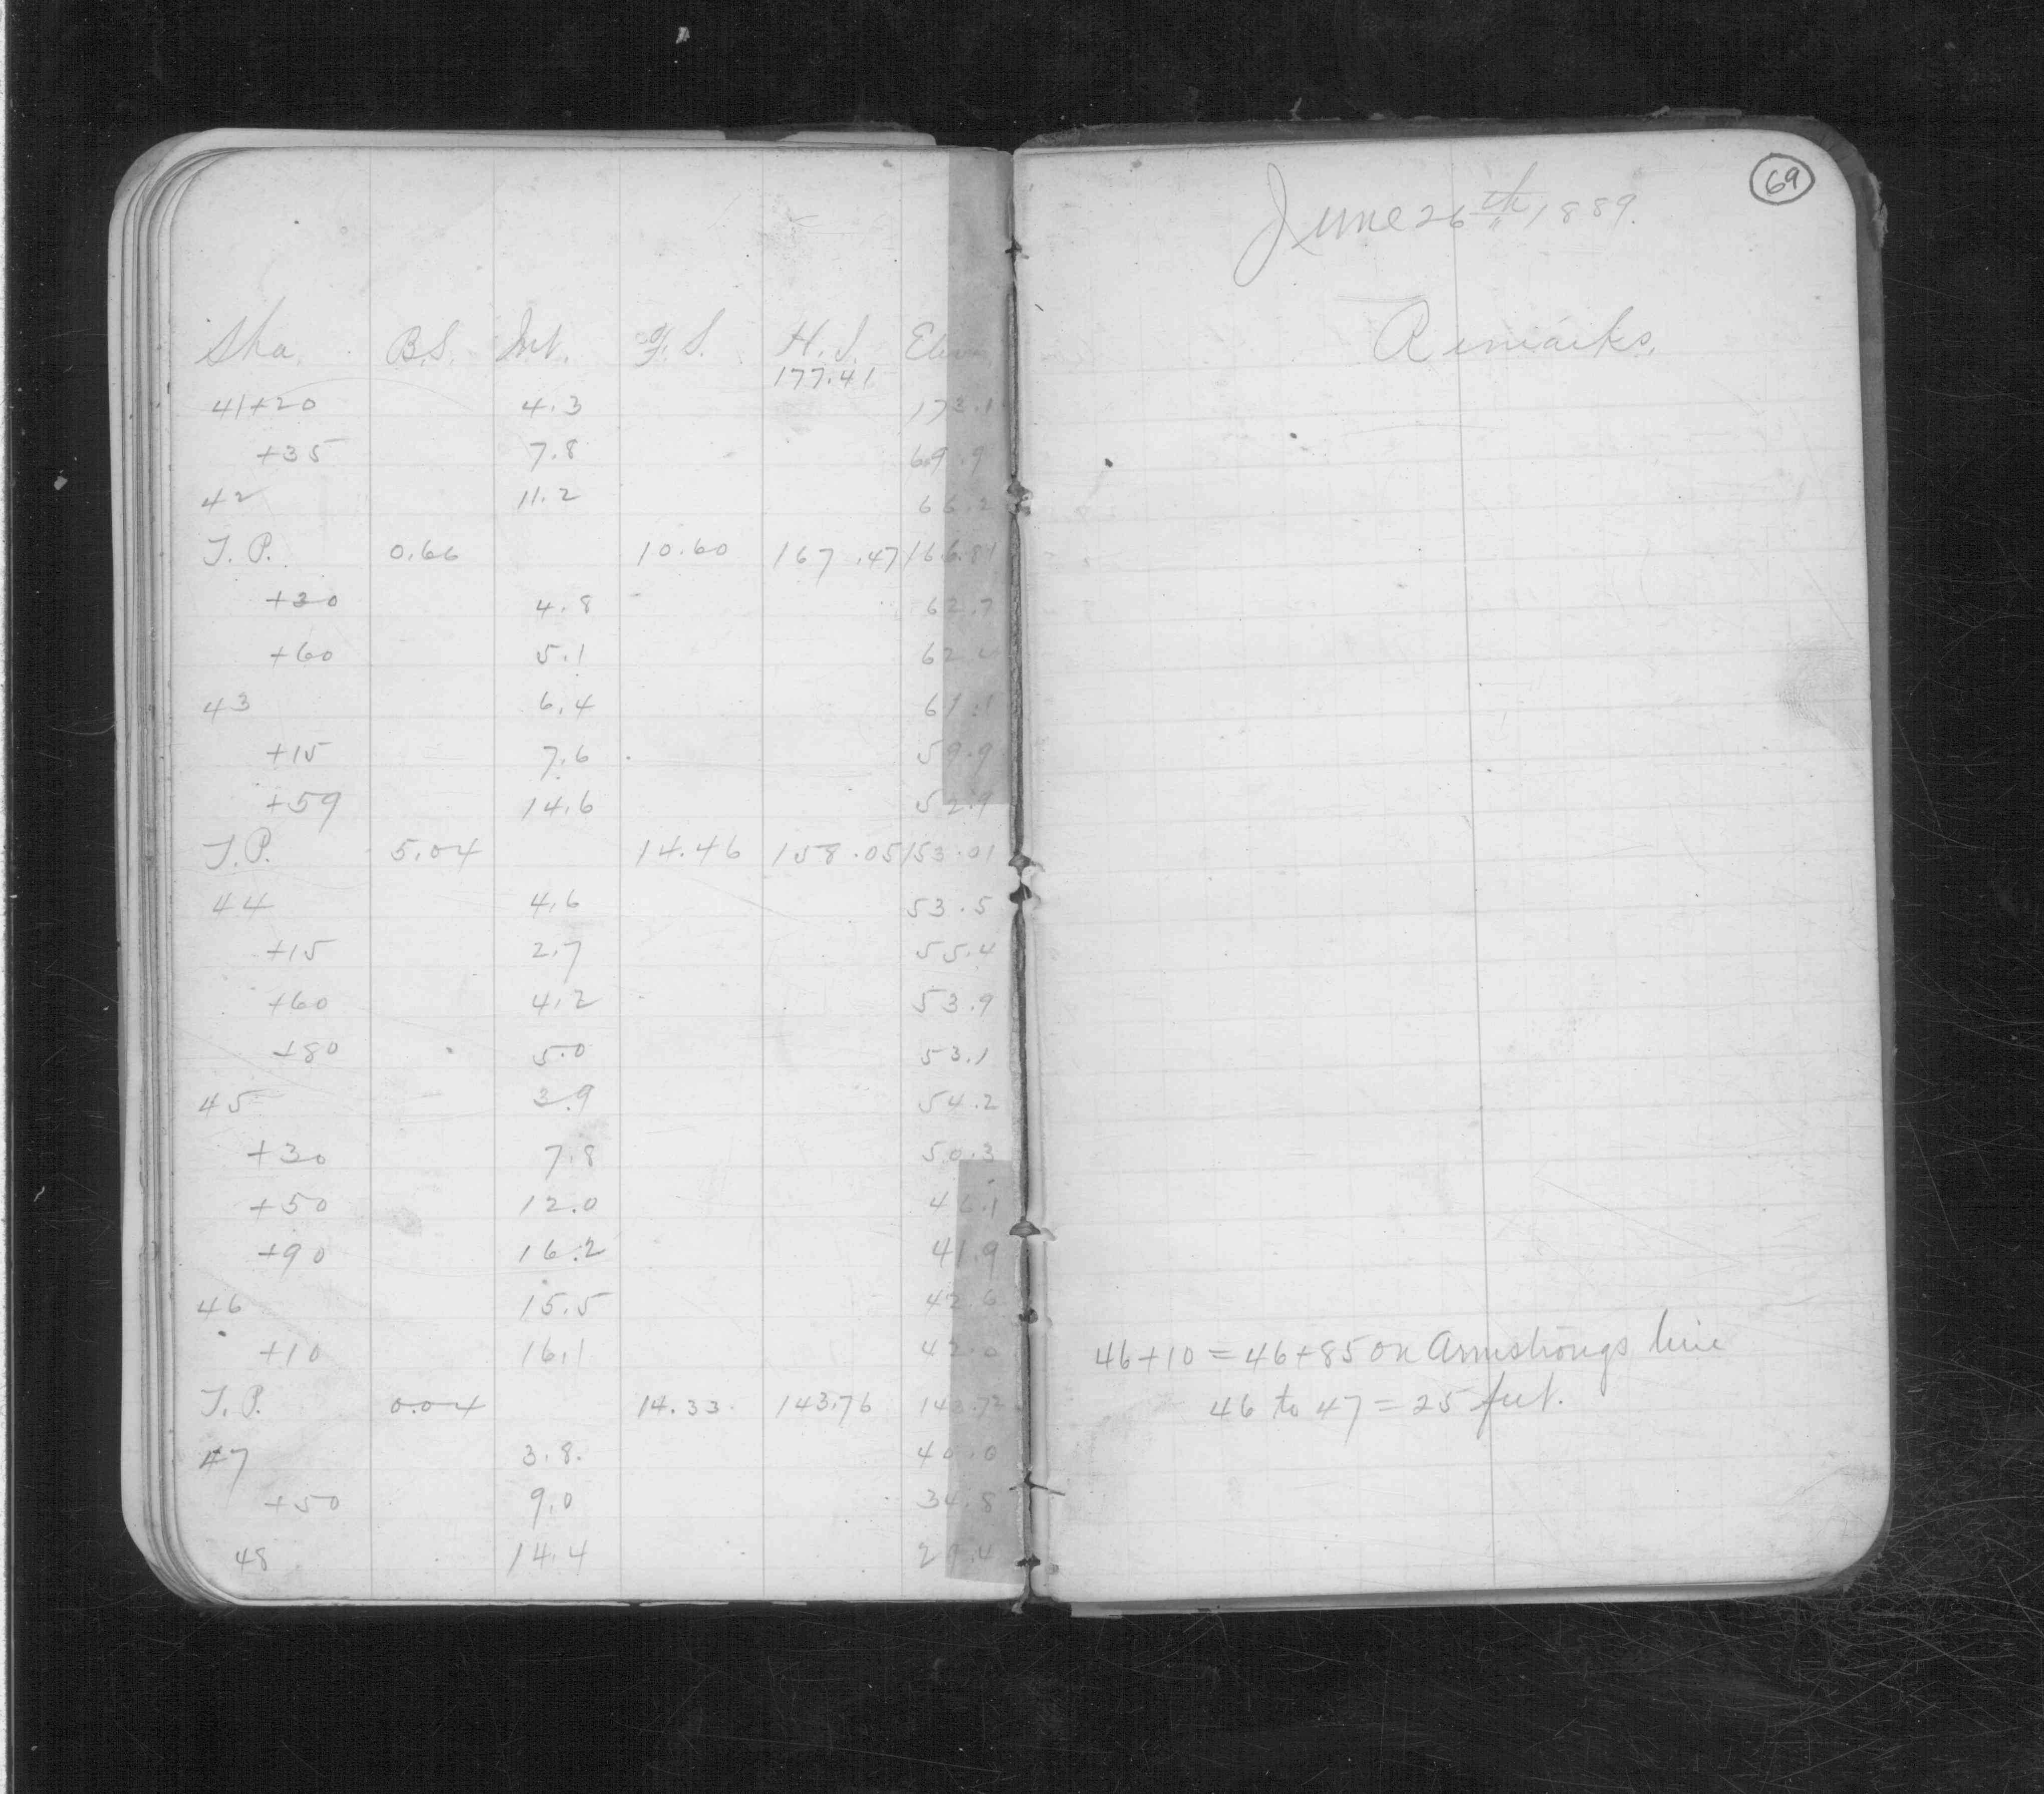 Sta. B.S. Int. F.S. H.I. Elev.
177.41
41+20 4.3 173.1
+35 7.8 69.9
42 11.2 66.2
T.P. 0.66 10.60 167.47 166.81
+30 4.8 62.7
+60 5.1 62.4
43 6.4 61.1
+15 7.6 59.9
+59 14.6 52.9
T.P. 5.04 14.46 158.05 153.01
44 4.6 53.5
+15 2.7 55.4
+60 4.2 53.9
+80 5.0 53.1
45 3.9 54.2
+30 7.8 50.3
+50 12.0 46.1
+90 16.2 41.9
46 15.5 42.6
+10 16.1 42.0
T.P. 0.04 14.33 143.76 143.72
47 3.8 40.0
+50 9.0 34.8
48 14.4 29.4
69
June 26th, 1889.
Remarks.
46+10 = 46+85 on Armstrongs line
46 to 47 = 25 feet.